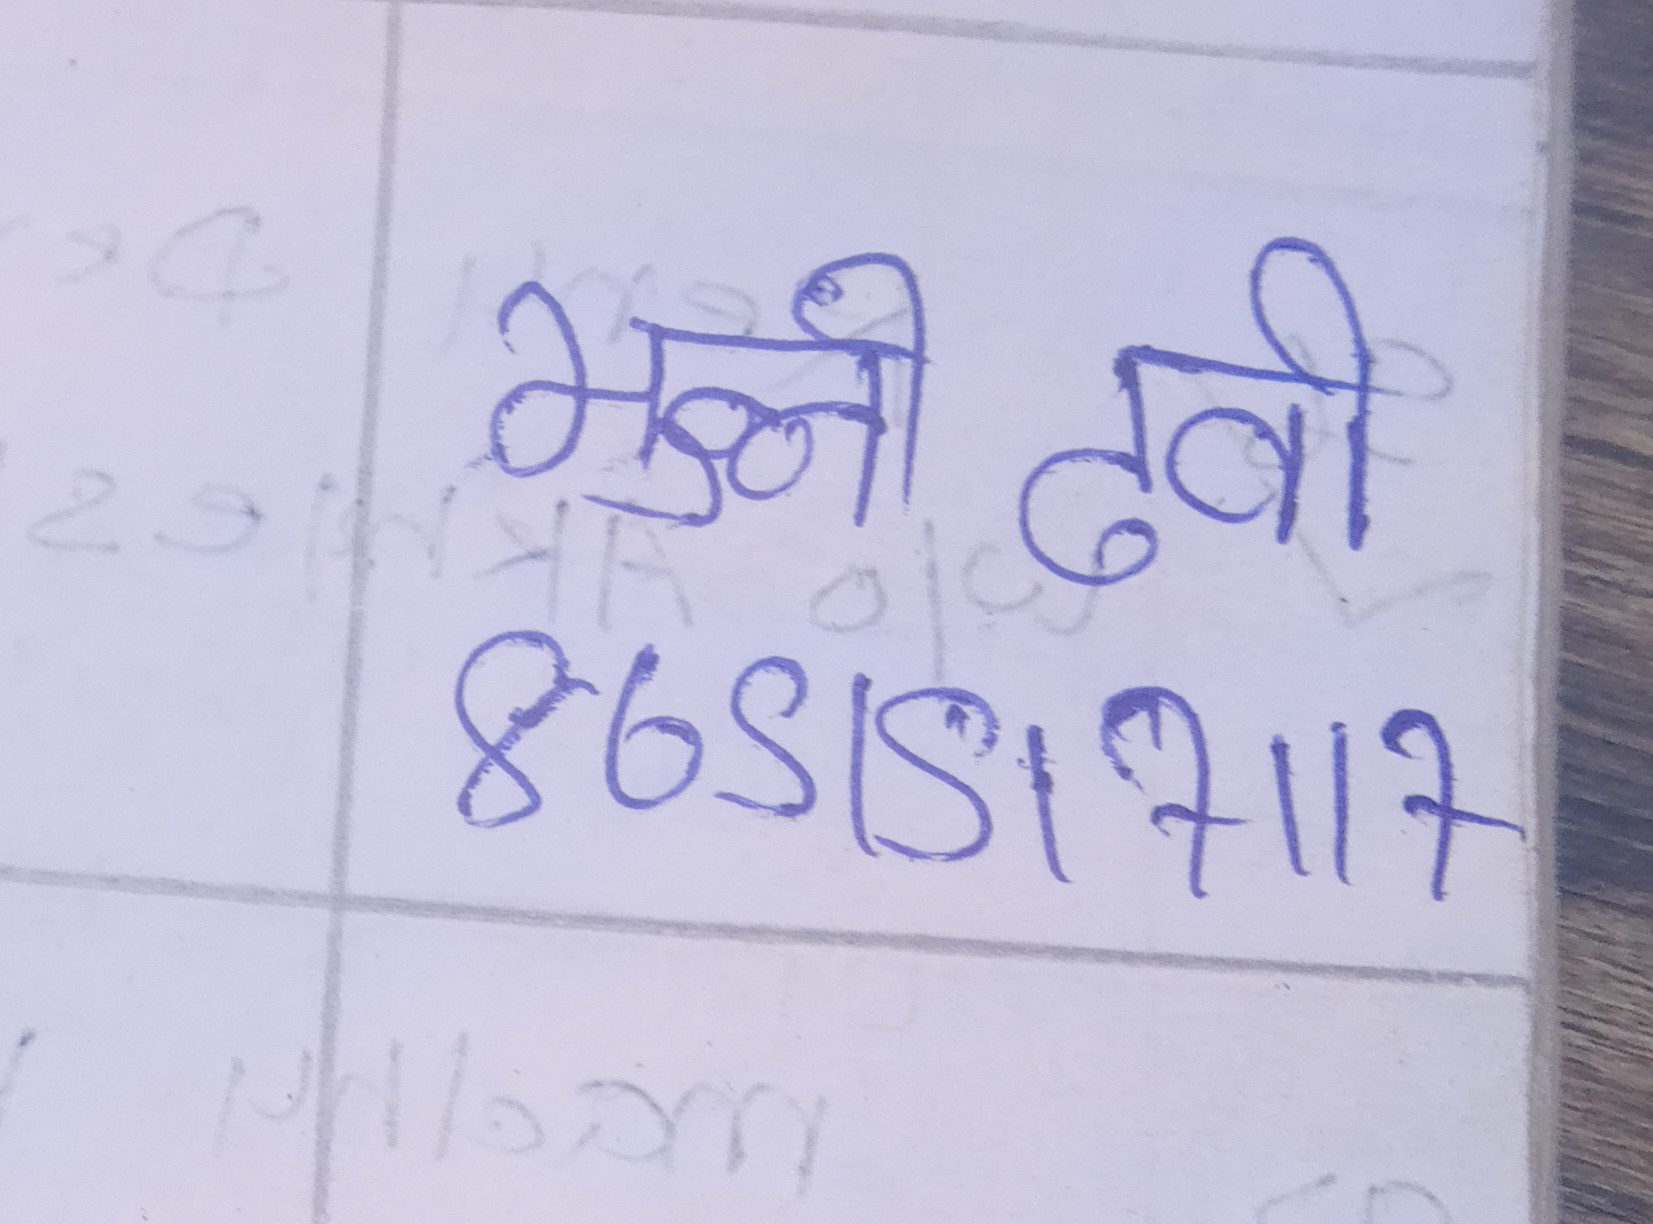 मुन्नी दवी
8651517117